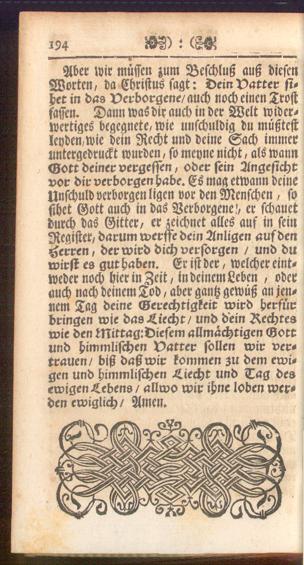 194 ) : (
Aber wir müssen zum Beschluß auß diesen
Worten, da Christus sagt: Dein Vatter si-
het in das Verborgene/ auch noch einen Trost
fassen. Dann was dir auch in der Welt wider-
wertiges begegnete, wie unschuldig du müßtest
leyden, wie dein Recht und deine Sach immer
untergedruckt wurden, so meyne nicht, als wann
Gott deiner vergessen, oder sein Angesicht
vor dir verborgen habe. Es mag etwann deine
Unschuld verborgen ligen vor den Menschen, so
sihet Gott auch in das Verborgene!, er schauet
durch das Gitter, er zeichnet alles auf in sein
Register, darum werffe dein Anligen auf den
Herren, der wird dich versorgen / und du
wirst es gut haben. Er ist der, welcher ent-
weder noch hier in Zeit, in deinem Leben, oder
auch nach deinem Tod, aber gantz gewüß an je-
nem Tag deine Gerechtigkeit wird herfür
bringen wie das Liecht/ und dein Rechtes
wie den Mittag: Diesem allmächtigen Gott
und himmlischen Vatter sollen wir ver-
trauen/ biß daß wir kommen zu dem ewi-
gen und himmlischen Liecht und Tag des
ewigen Lebens/ allwo wir ihne loben wer-
den ewiglich/ Amen.